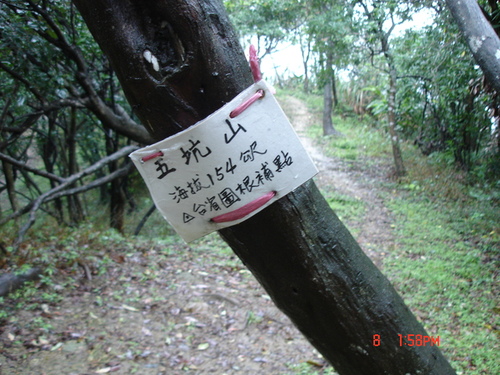 五坑山
海拔154公尺
△台省圖根補點
8 1:58PM